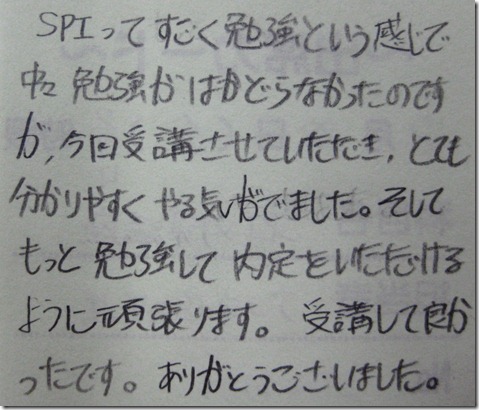 SPIってすごく勉強という感じで
中々勉強がはかどらなかったのです
が、今回受講させていただき、とても
分かりやすくやる気がでました。そして
もっと勉強して内定をいただける
ように頑張ります。 受講して良か
ったです。ありがとうございました。